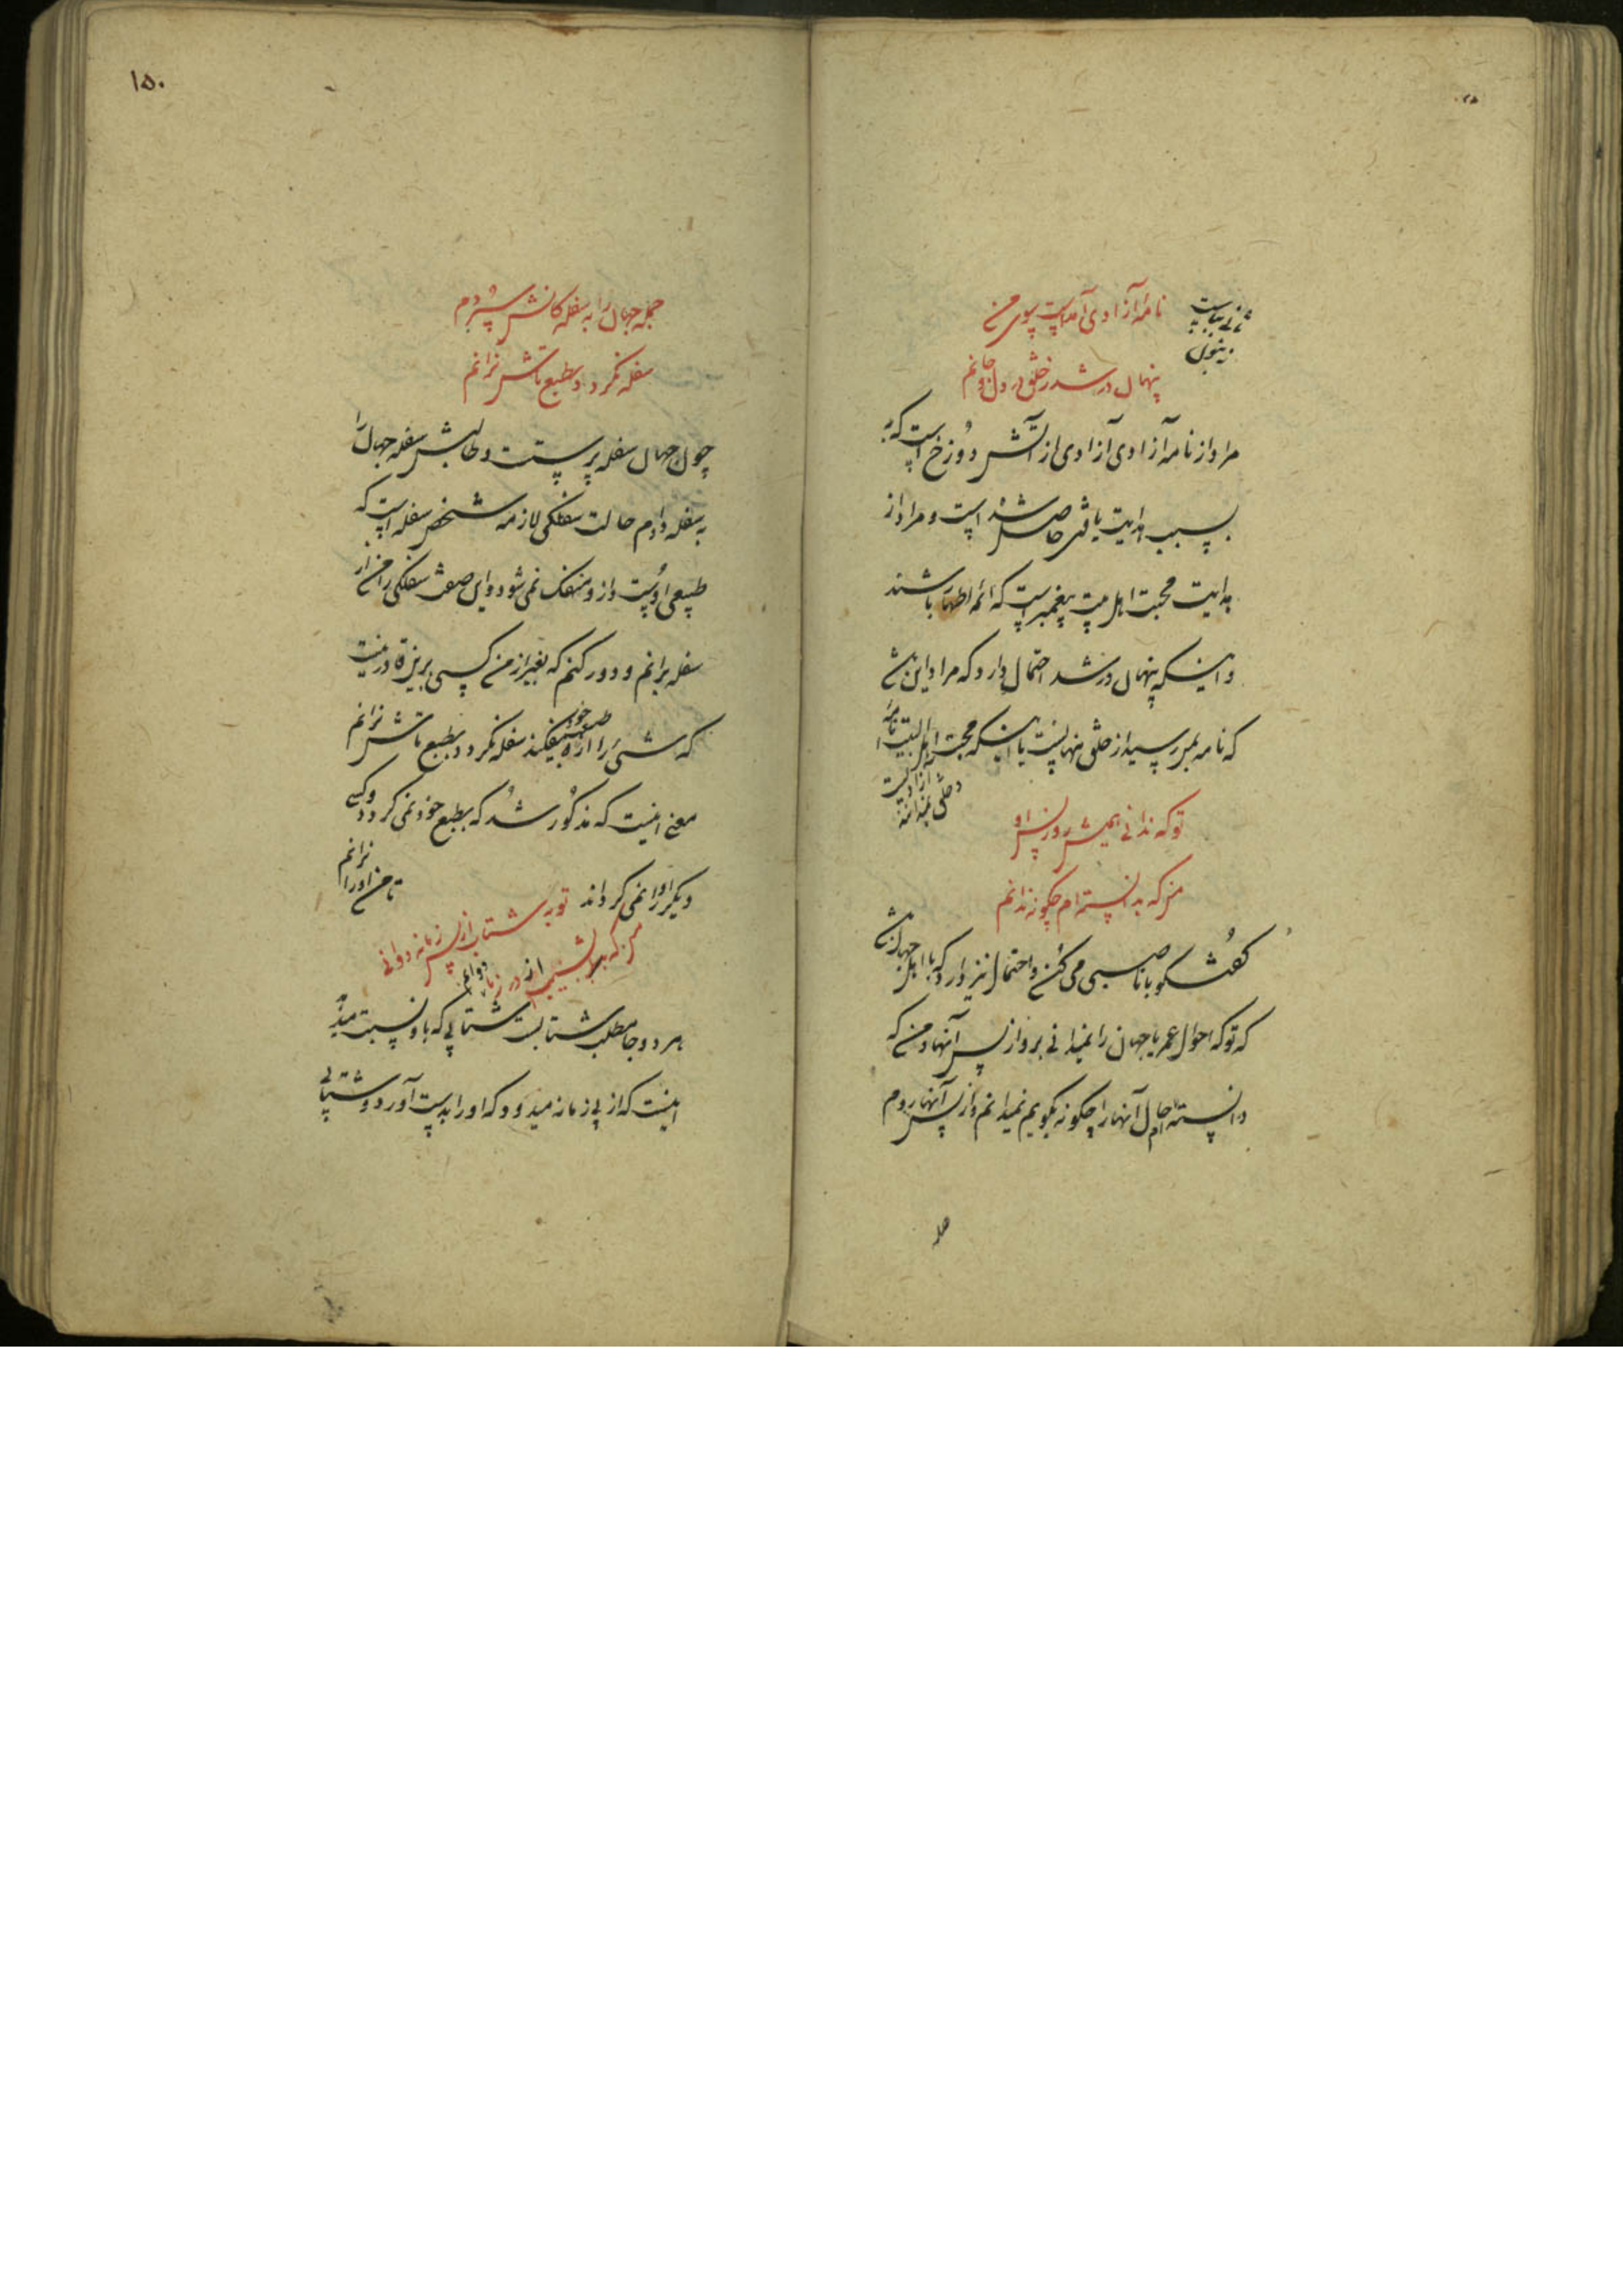 نامهٔ آزادی آمداست بسوی من
پنهان در شد ز خلق در دل و جانم
مراد از نامه آزادی آزادی از آتش دوزخ است که
بسبب هدایت یافتن حاصل شده است و مراد از
هدایت محبت اهل بیت پیغمبر است که ائمه اطهار باشند
و اینکه پنهان در شد احتمال دارد که مراد این باشد
که نامه بمن رسید از خلق پنهانست یا اینکه محبت اهل البیت نامه
آزادیست
و خلق نمیدانند
تو که ندانی همیشه رو ز پس او
من که بدانسته‌ام چگونه ندانم
گفتگو با ناصبی می کند و احتمال نیز دارد که با اهل جهان باشد
که تو که احوال عمر یا جهان را نمیدانی برو از پس آنها و من که
دانسته‌ام حال آنها را چگونه بگویم نمیدانم و از پس آنها روم
۱۵۰
جمله جهان را به سفلگانش سپردم
سفله نگردد بطبع تاش نرانم
چون جهان سفله پرست و طالبش سفله جهان را
به سفله دادم حالت سفلگی لازمه شخص سفله است که
طبیعی اوست و از و منفک نمی شود و این صفت سفلگی را من از
سفله برانم و دور کنم که بغیر از من کسی را این قدرت نیست
که شیٔ را از طبع خود بیفکند سفله نگردد بطبع تاش نرانم
معنی اینست که مذکور شد که بطبع خود نمی گردد و کسی
دیگر او را نمی گرداند
تا من او را نرانم
تو به شتاب از پس زمانه دوانی
من که بر نشیب از در زمانه دوانم
هر دو جا مطلب شتابست شتابی که باو نسبت میدهد
اینست که از پی زمانه میدود که او را بدست آورد و شتابی